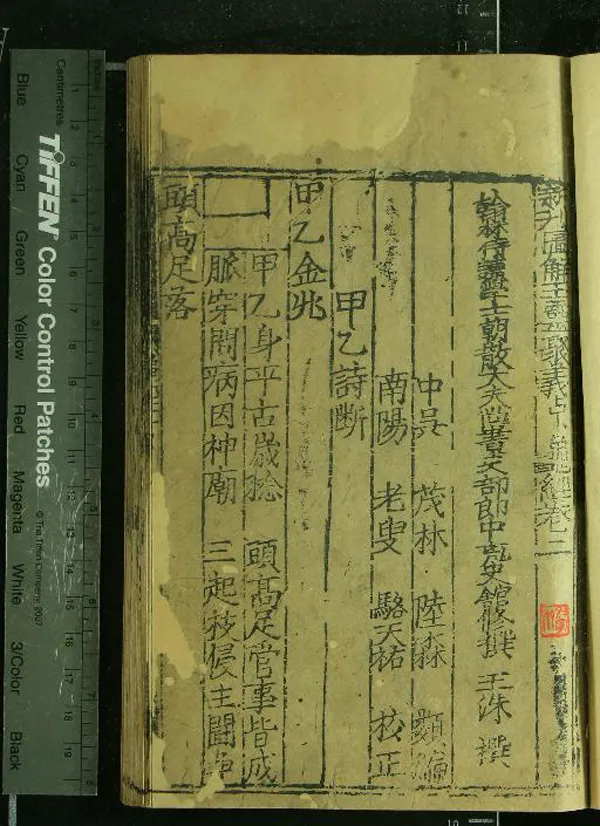 新刊圖解玉靈聚義占卜龜經卷二
翰林侍講學士朝散大夫尚書吏部郎中充史館修撰王洙撰
中吳 茂林 陸森 類編
南陽 老叟 駱天祐 校正
甲乙詩断
甲乙金兆
甲乙身平古歲捻 頭髙足
事皆成
脈穿問病因神廟 三起枝侵主鬪爭
頭髙足落
Centimetres
TIFFEN® Color Control Patches
© The Tiffen Company, 2007
Blue
Cyan
Green
Yellow
Red
Magenta
White
3/Color
Black